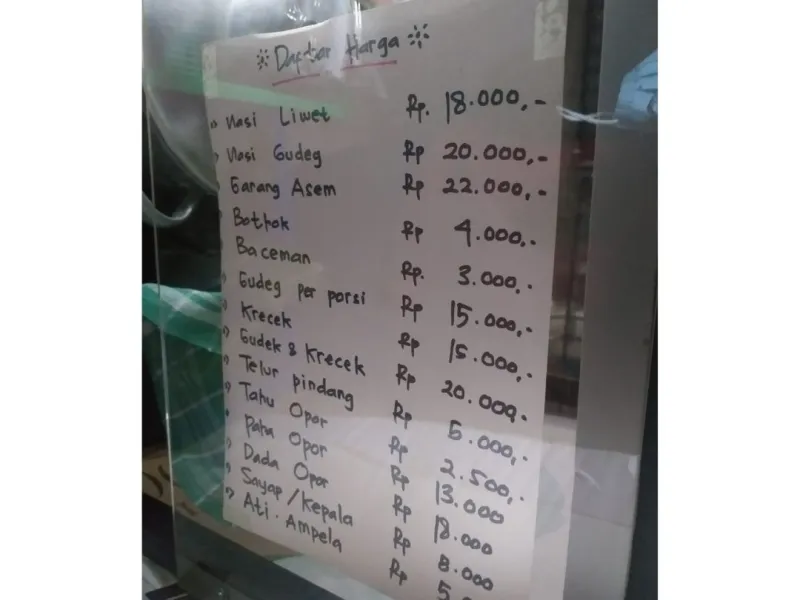 Daftar Harga
Nasi Liwet Rp. 18.000,-
Nasi Gudeg Rp 20.000,-
Garang Asem Rp 22.000,-
Bothok Rp 4.000,-
Baceman Rp. 3.000,-
Gudeg per porsi Rp 15.000,-
Krecek Rp 15.000,-
Gudek & Krecek Rp 20.000-
Telur pindang Rp 5.000,-
Tahu Opor Rp 2.500,-
Paha Opor Rp 13.000
Dada Opor Rp 18.000
Sayap/Kepala Rp 8.000
Ati. Ampela Rp